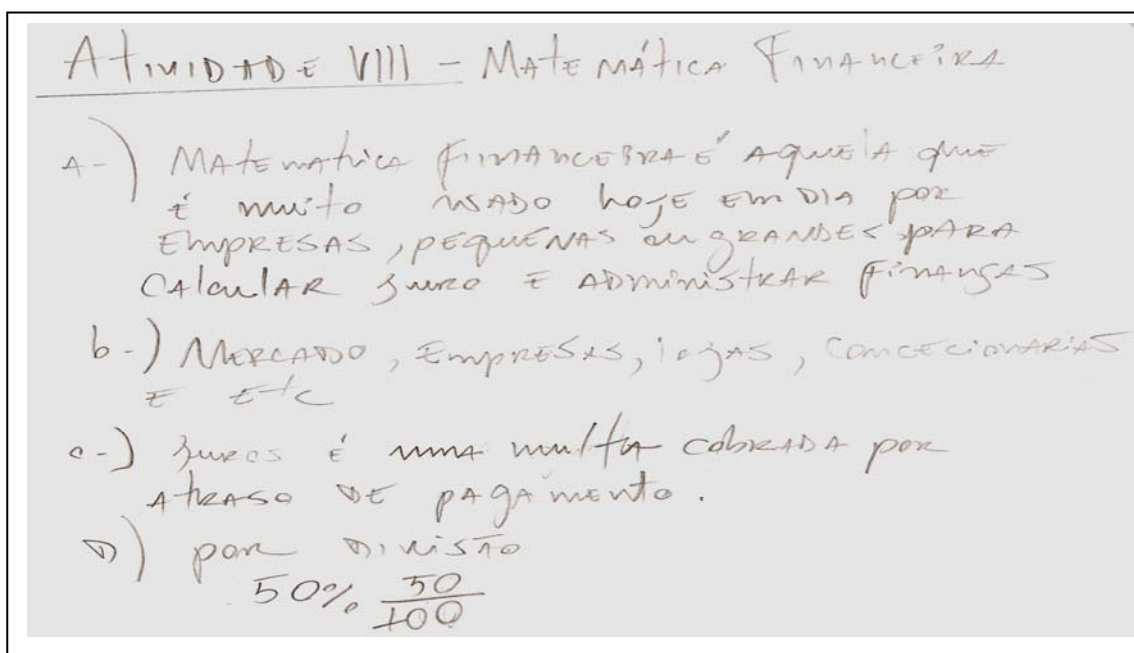 ATIVIDADE VIII - MATEMÁTICA FINANCEIRA
A-) MATEMATICA FINANCEIRA É AQUELA QUE
É muito USADO hoJE Em DIA por
EmpRESAS, PEQUENAS ou GRANDES PARA
CAlculAR JuRo E ADministRAR FinAnçAS
b-) MERCADO, EmpRESAS, lojAS, CONCECIONARIAS
E Etc
c-) JuRos é umA multA cobRADA por
AtRASO DE pAgAmento.
D) por DIVISÃO
50% 50/100